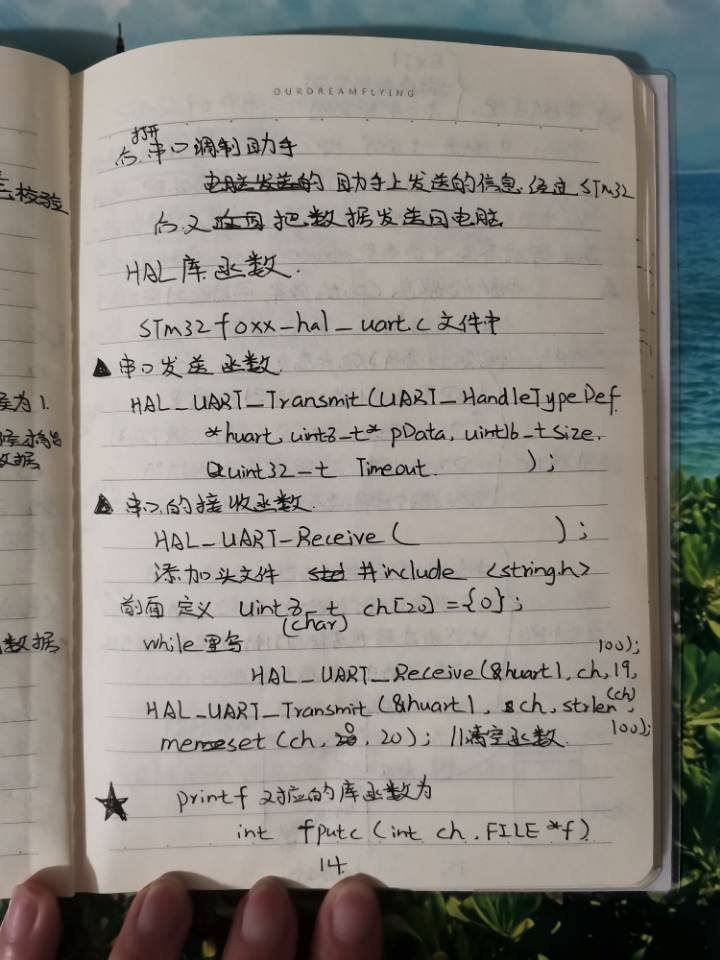 OURDREAMFLYING
打开
后.串口调制助手
电脑发送的 助手上发送的信息.经过STm32
后.又返回把数据发送回电脑
HAL库函数.
STm32f0xx-hal_uart.c文件中
▲串口发送函数.
HAL_UART_Transmit(UART_HandleTypeDef
*huart, uint8-t* pData, uint16-t size,
uint32-t Timeout. );
▲串口的接收函数.
HAL_UART-Receive( );
添加头文件 std #include <string.h>
前面定义 uint8_t ch[20]={0};
(char)
while里写
HAL_UART_Receive(&huart1, ch, 19, 100);
HAL_UART_Transmit(&huart1, ch, strlen(ch), 100);
memeset(ch, 0, 20); //清空函数.
★ printf对应的库函数为
int fputc(int ch, FILE *f)
14
校验
为1.
数据
数据